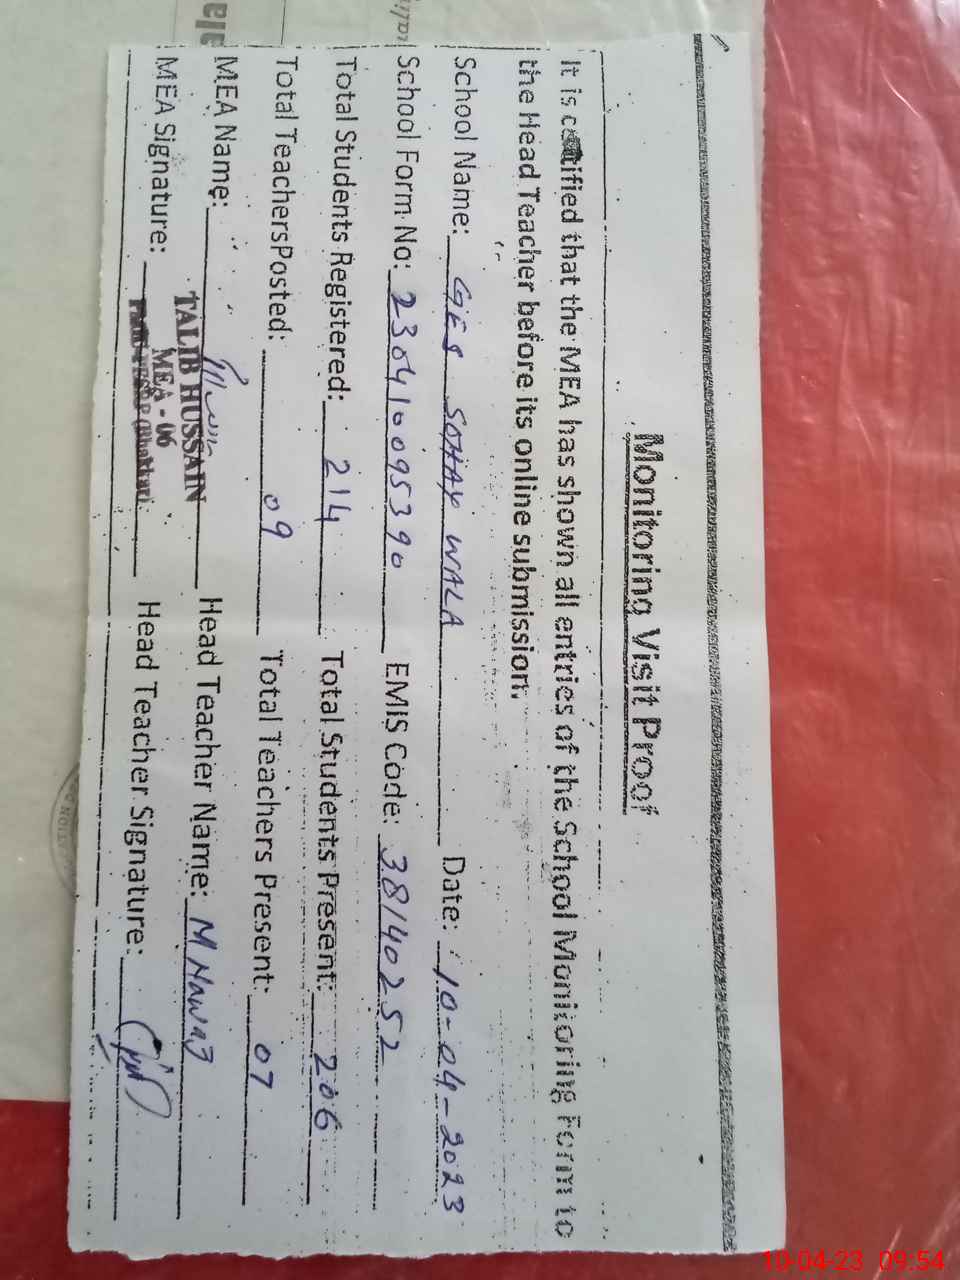 Monitoring Visit Proof
It is certified that the MEA has shown all entries of the School Monitoring Form to
the Head Teacher before its online submission.
School Name: GES SOHAY WALA Date: 10-04-2023
School Form No: 230410095390 EMIS Code: 38140252
Total Students Registered: 214 Total Students Present: 206
Total TeachersPosted: 09 Total Teachers Present: 07
MEA Name: Head Teacher Name: M Nawaz
TALIB HUSSAIN
MEA Signature: Head Teacher Signature:
MEA - 06
(Bhakkar)
10-04-23 09:54